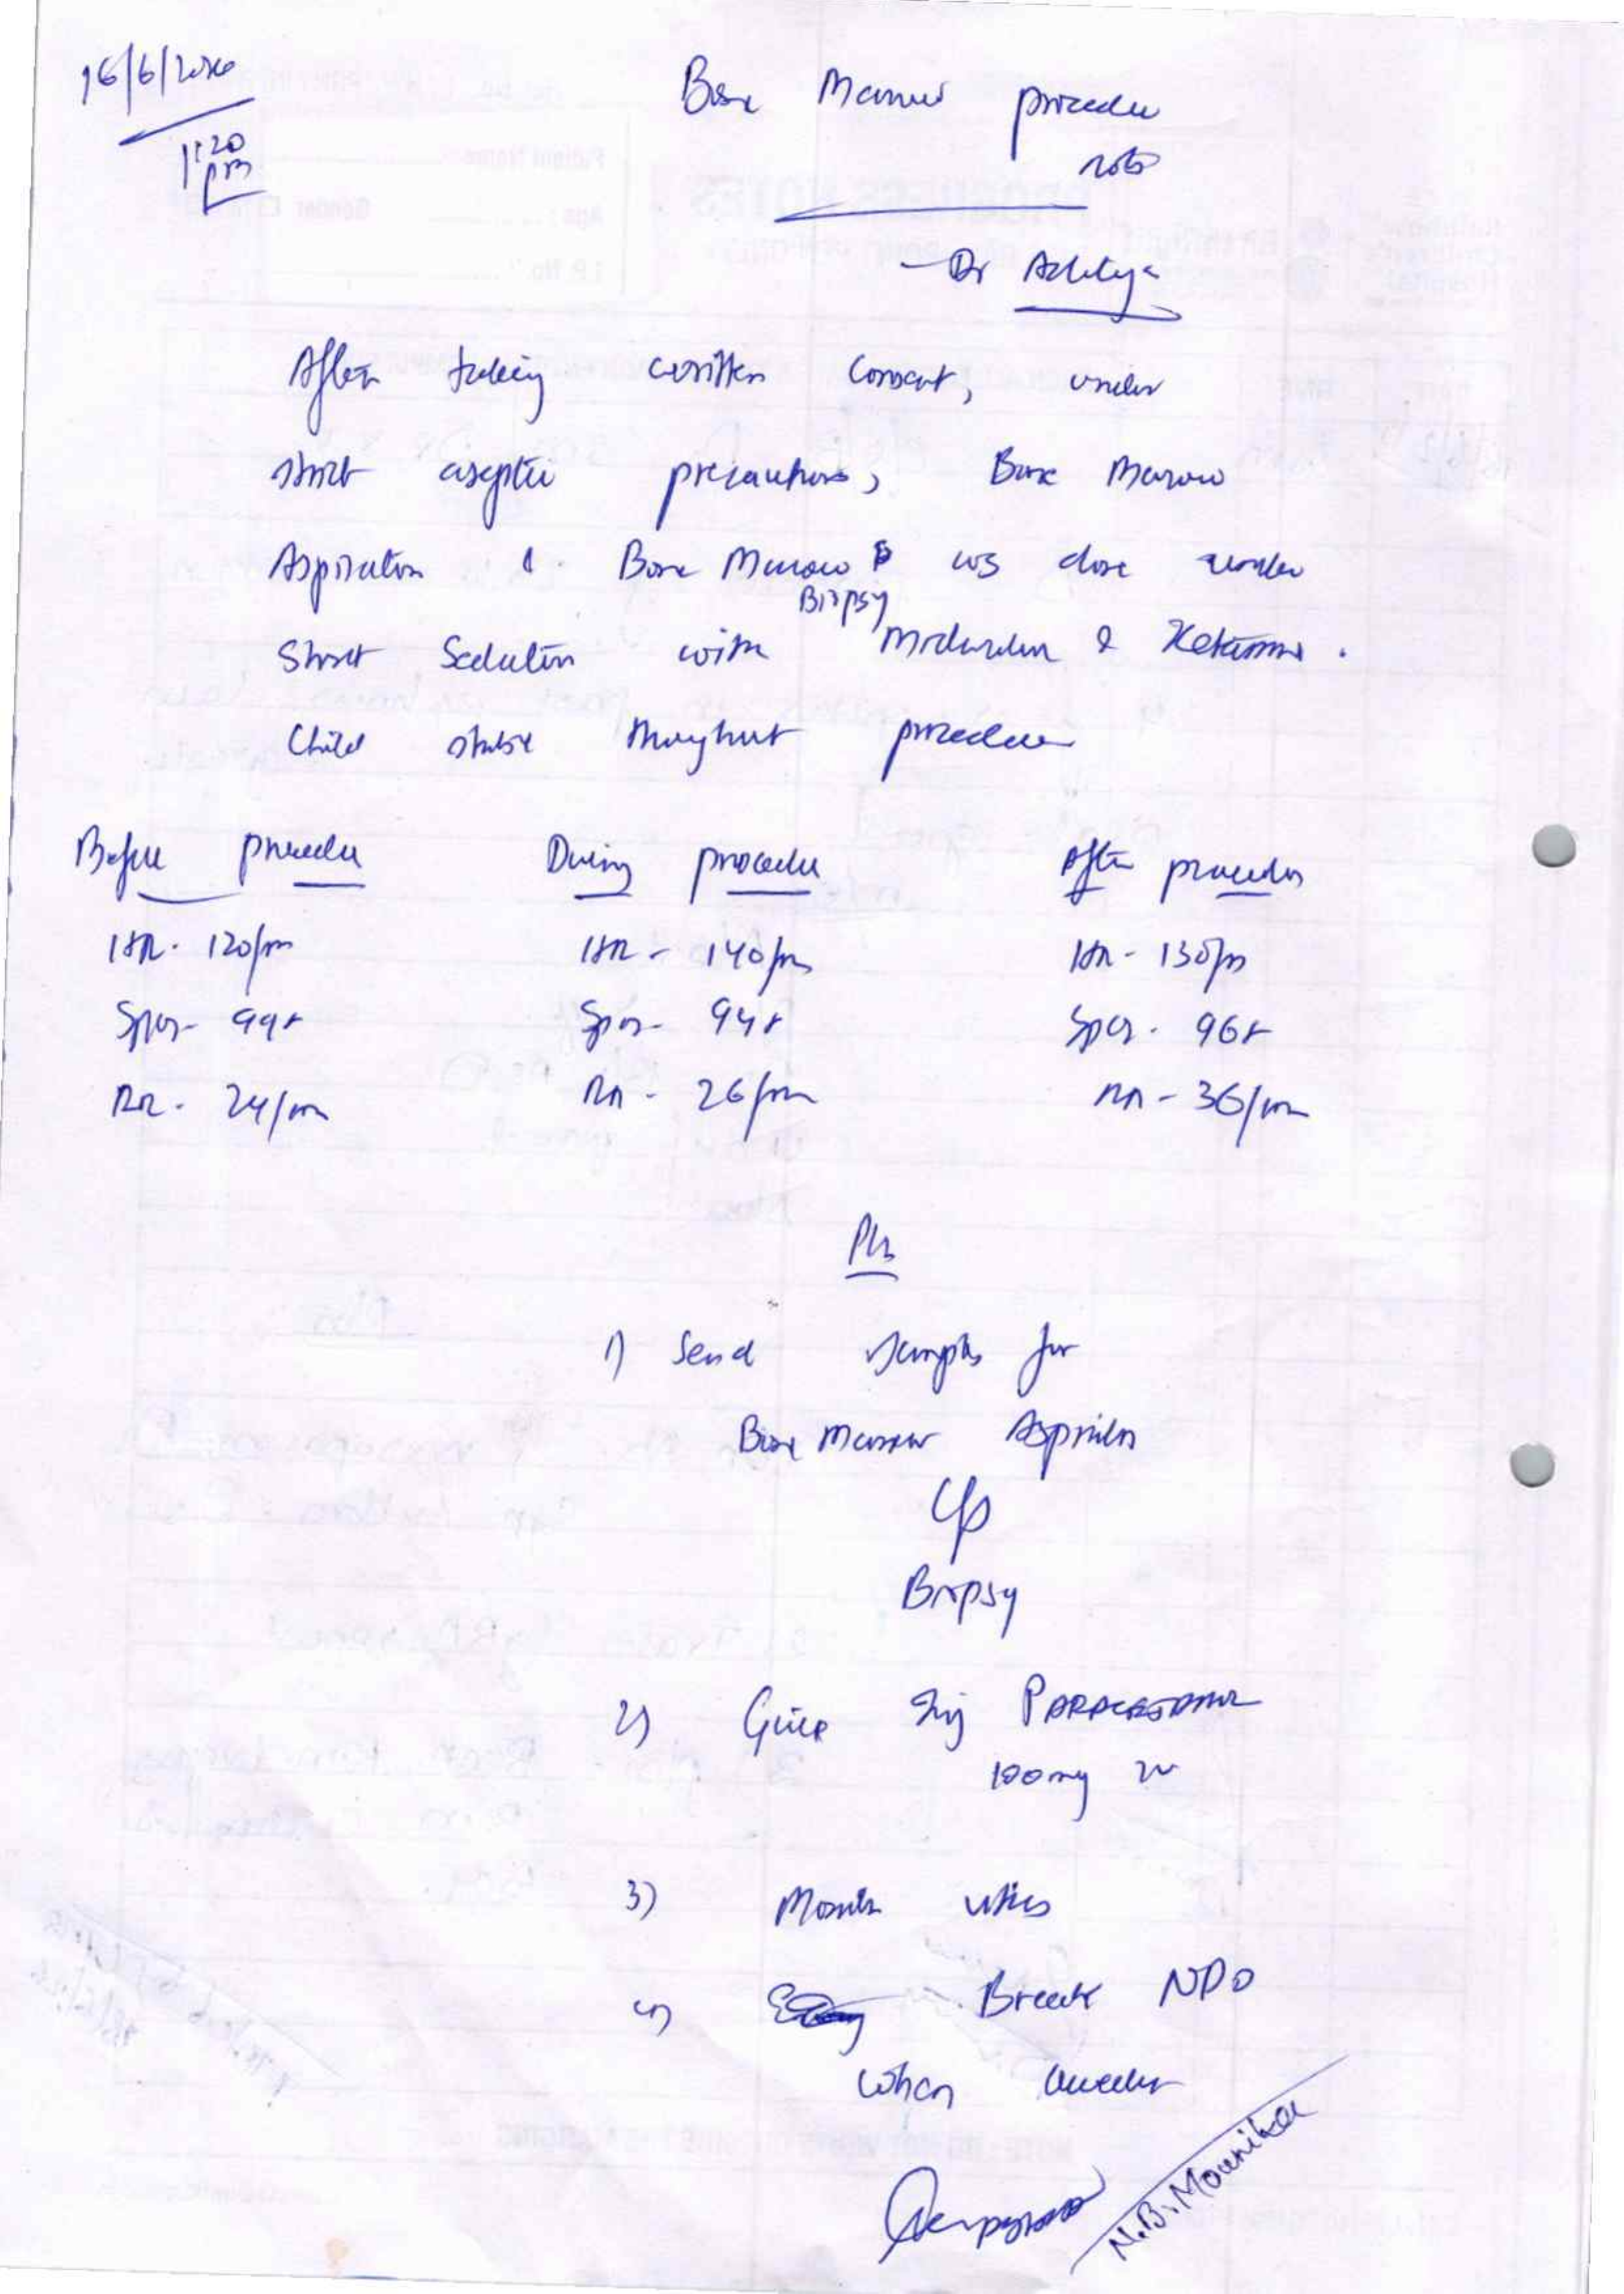 16/6/2026
1:20 pm
Bone Marrow procedure
notes
- Dr Aditya
After taking written consent, under
strict aseptic precautions, Bone Marrow
Aspiration & Bone Marrow was done under
Biopsy
Short Sedation with Midazolam & Ketamine.
Child stable throughout procedure
Before procedure During procedure After procedure
HR - 120/m HR - 140/m HR - 130/m
SpO2 - 99% SpO2 - 94% SpO2 - 96%
RR - 24/m RR - 26/m RR - 36/m
Plan
1) Send samples for
Bone Marrow Aspiration
Biopsy
2) Give Inj PARACETAMOL
100mg IV
3) Monitor vitals
4) Break NPO
when awake
N.B. Mounika